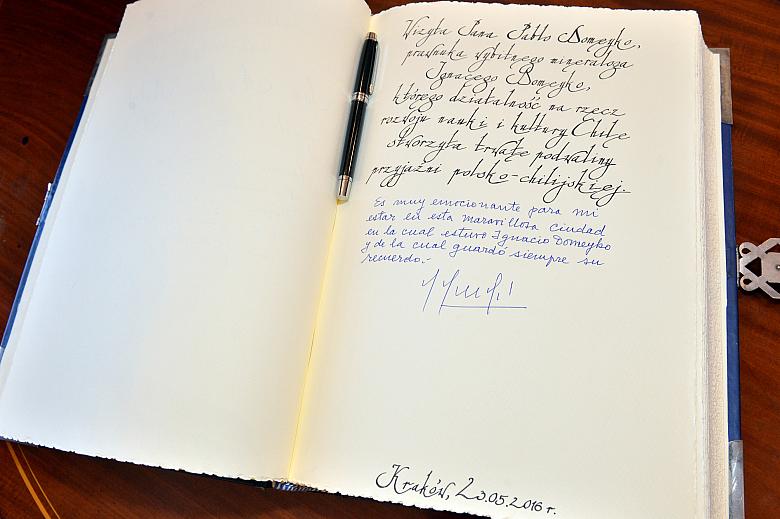 Wizyta Pana Pablo Domeyko,
prawnuka wybitnego mineraloga
Ignacego Domeyki,
którego działalność na rzecz
rozwoju nauki i kultury Chile
stworzyła trwałe podwaliny
przyjaźni polsko-chilijskiej.
Es muy emocionante para mi
estar en esta maravillosa ciudad
en la cual estuvo Ignacio Domeyko
y de la cual guardó siempre su
recuerdo.-
Kraków, 23.05.2016 r.